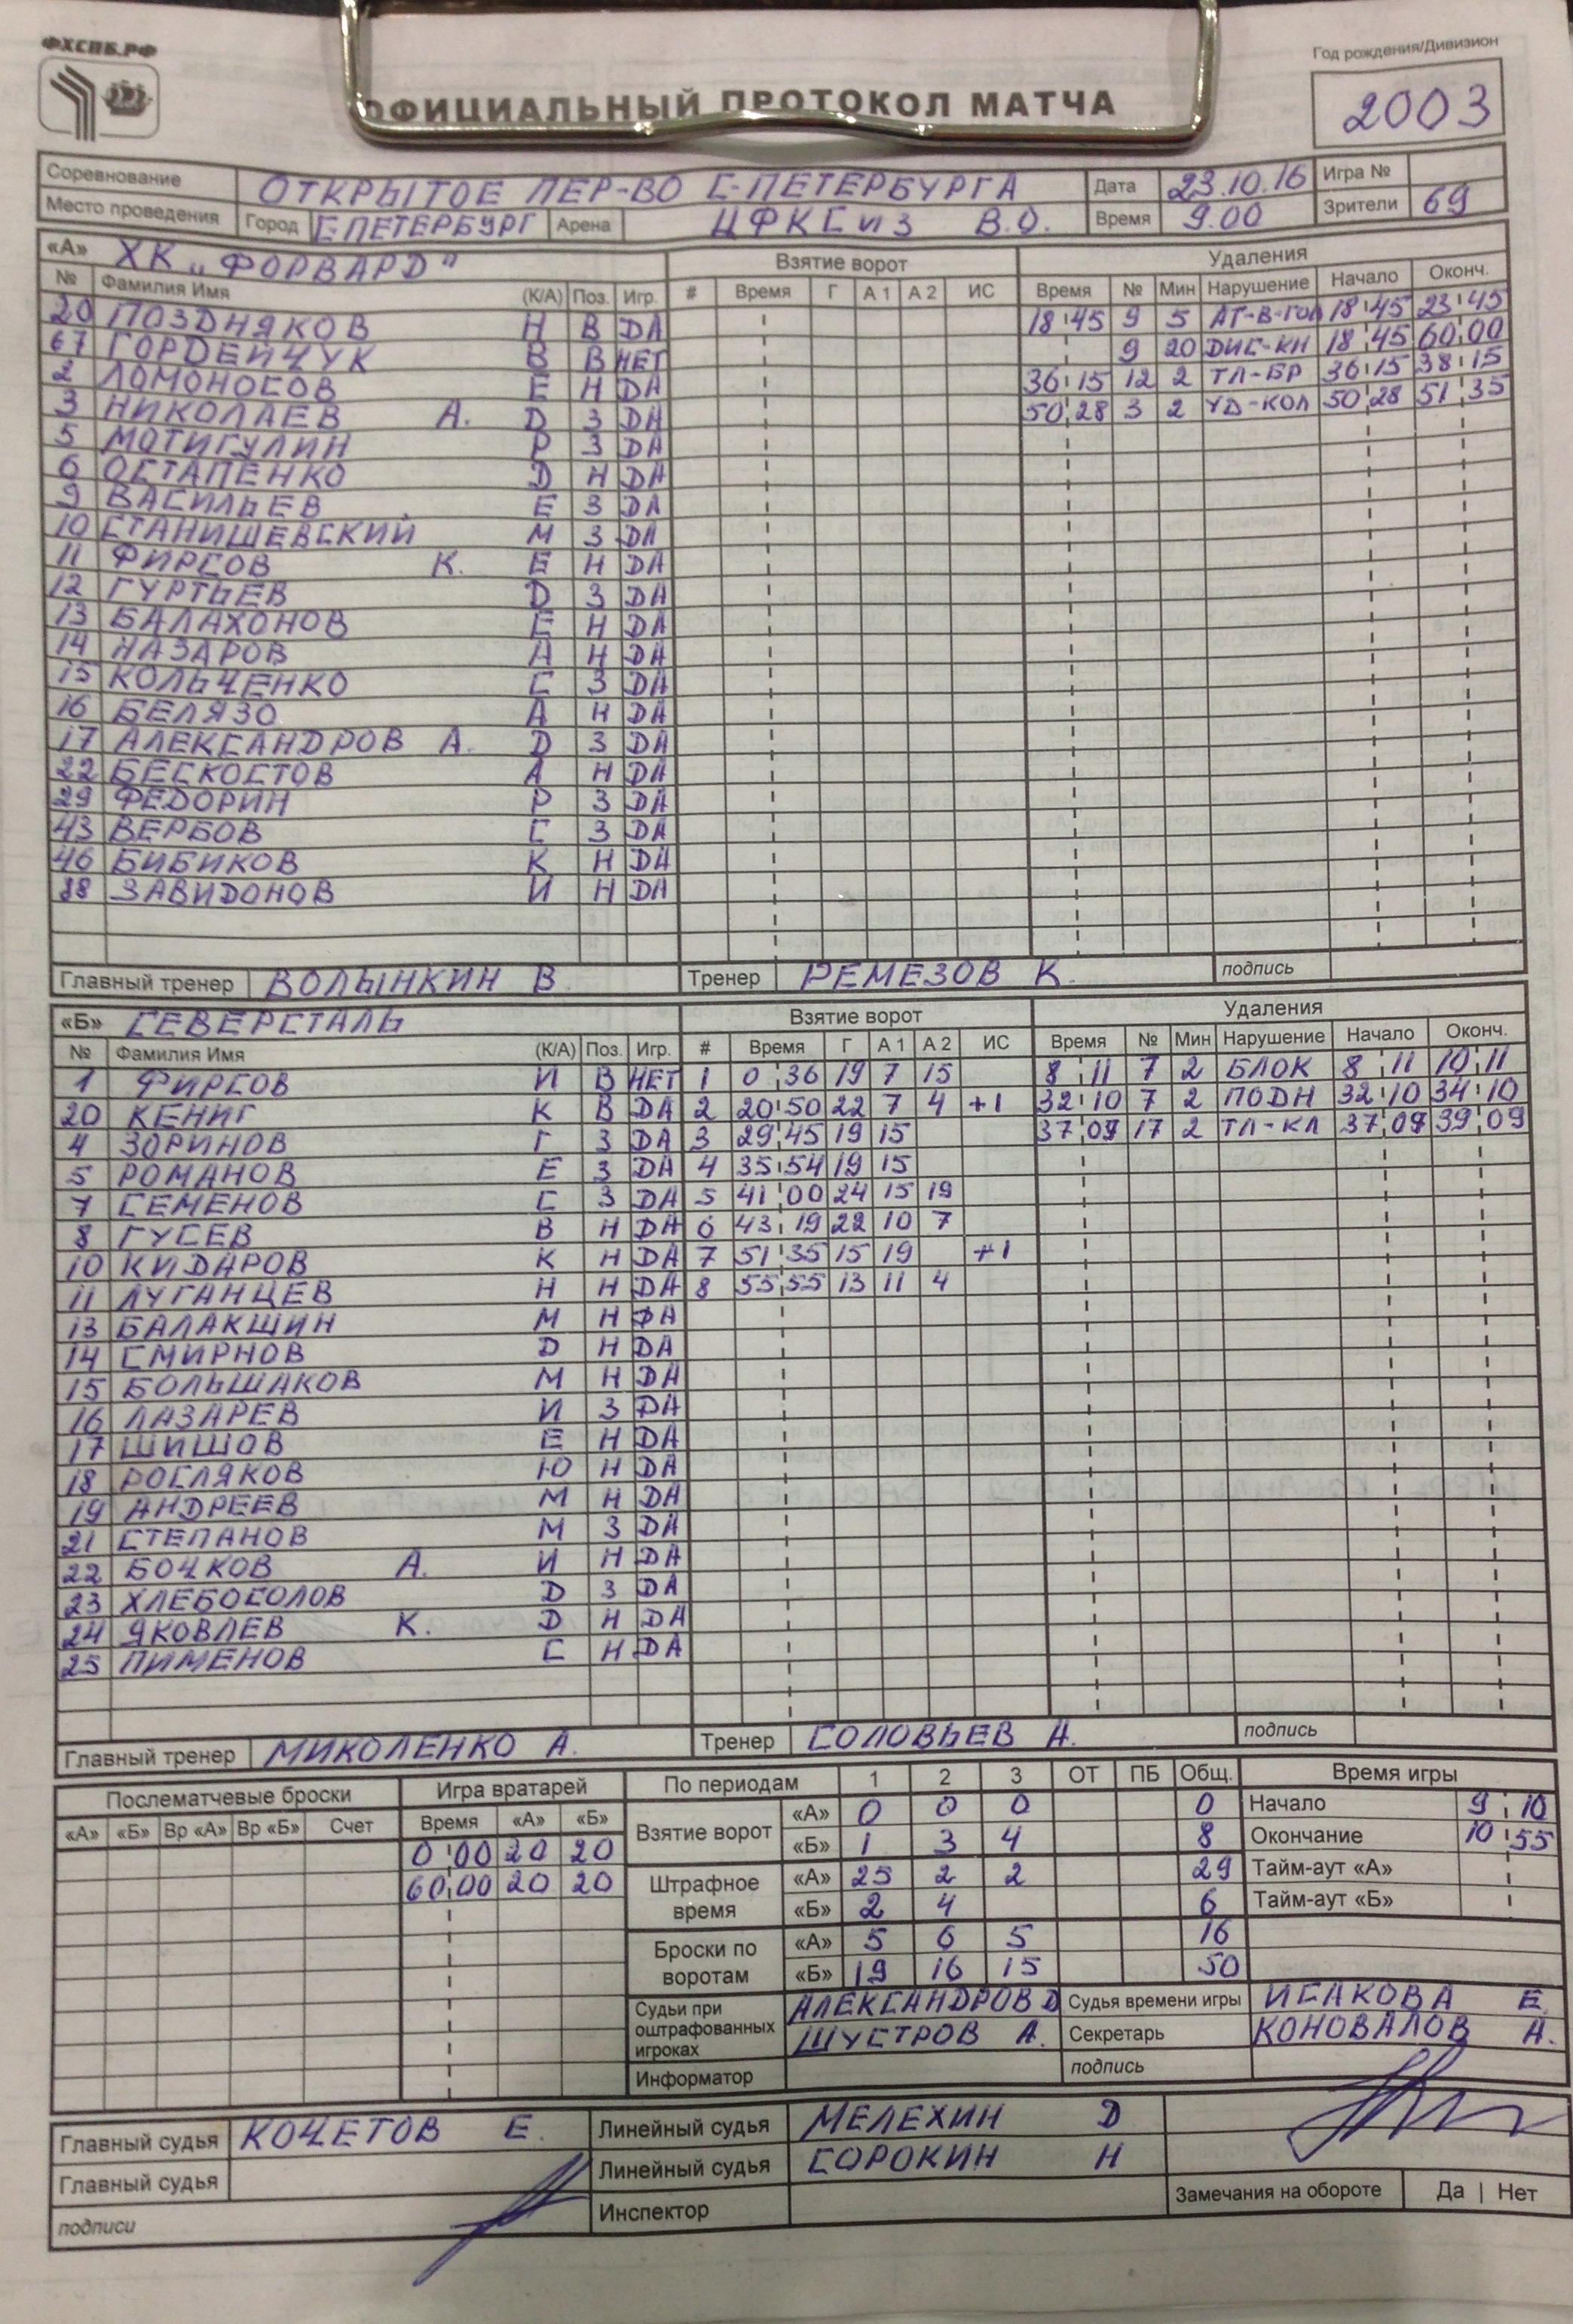 ФХСПБ.РФ
Год рождения/Дивизион
ОФИЦИАЛЬНЫЙ ПРОТОКОЛ МАТЧА
2003
Соревнование ОТКРЫТОЕ ПЕР-ВО С-ПЕТЕРБУРГА Дата 23.10.16 Игра №
Место проведения Город С-ПЕТЕРБУРГ Арена ЦФКСиЗ В.О. Время 9.00 Зрители 69
«А» ХК „ФОРВАРД" Взятие ворот Удаления
№ Фамилия Имя (К/А) Поз. Игр. # Время Г А 1 А 2 ИС Время № Мин Нарушение Начало Оконч.
20 ПОЗДНЯКОВ Н В DА 18:45 9 5 АТ-В-ГОЛ 18:45 23:45
67 ГОРДЕЙЧУК В В НЕТ 9 20 ДИС-КН 18:45 60:00
2 ЛОМОНОСОВ Е Н DА 36:15 12 2 ТЛ-БР 36:15 38:15
3 НИКОЛАЕВ А. D З DА 50:28 3 2 УД-КОЛ 50:28 51:35
5 МОТИГУЛИН Р З DА
6 ОСТАПЕНКО D Н DА
9 ВАСИЛЬЕВ Е З DА
10 СТАНИШЕВСКИЙ М З DА
11 ФИРСОВ К. Е Н DА
12 ГУРТЬЕВ D З DА
13 БАЛАХОНОВ Е Н DА
14 НАЗАРОВ А Н DА
15 КОЛЬЧЕНКО С З DА
16 БЕЛЯЗО А Н DА
17 АЛЕКСАНДРОВ А. D З DА
22 БЕСКОСТОВ А Н DА
29 ФЕДОРИН Р З DА
43 ВЕРБОВ С З DА
46 БИБИКОВ К Н DА
88 ЗАВИДОНОВ И Н DА
Главный тренер ВОЛЫНКИН В. Тренер РЕМЕЗОВ К. подпись
«Б» СЕВЕРСТАЛЬ Взятие ворот Удаления
№ Фамилия Имя (К/А) Поз. Игр. # Время Г А 1 А 2 ИС Время № Мин Нарушение Начало Оконч.
1 ФИРСОВ И В НЕТ 1 0:36 19 7 15 8:11 7 2 БЛОК 8:11 10:11
20 КЕНИГ К В DА 2 20:50 22 7 4 +1 32:10 7 2 ПОДН 32:10 34:10
4 ЗОРИНОВ Г З DА 3 29:45 19 15 37:09 17 2 ТЛ-КЛ 37:09 39:09
5 РОМАНОВ Е З DА 4 35:54 19 15
7 СЕМЕНОВ С З DА 5 41:00 24 15 19
8 ГУСЕВ В Н DА 6 43:19 22 10 7
10 КИДАРОВ К Н DА 7 51:35 15 19 +1
11 ЛУГАНЦЕВ Н Н DА 8 55:55 13 11 4
13 БАЛАКШИН М Н DА
14 СМИРНОВ D Н DА
15 БОЛЬШАКОВ М Н DА
16 ЛАЗАРЕВ И З DА
17 ШИШОВ Е Н DА
18 РОСЛЯКОВ Ю Н DА
19 АНДРЕЕВ М Н DА
21 СТЕПАНОВ М З DА
22 БОЧКОВ А. И Н DА
23 ХЛЕБОСОЛОВ D З DА
24 ЯКОВЛЕВ К. D Н DА
25 ПИМЕНОВ С Н DА
Главный тренер МИКОЛЕНКО А. Тренер СОЛОВЬЕВ А. подпись
Послематчевые броски Игра вратарей По периодам 1 2 3 ОТ ПБ Общ. Время игры
«А» «Б» Вр «А» Вр «Б» Счет Время «А» «Б» Взятие ворот «А» 0 0 0 0 Начало 9:10
0:00 20 20 «Б» 1 3 4 8 Окончание 10:55
60:00 20 20 Штрафное время «А» 25 2 2 29 Тайм-аут «А»
«Б» 2 4 6 Тайм-аут «Б»
Броски по воротам «А» 5 6 5 16
«Б» 19 16 15 50
Судьи при оштрафованных игроках АЛЕКСАНДРОВ Д Судья времени игры ИСАКОВА Е.
ШУСТРОВ А. Секретарь КОНОВАЛОВ А.
Информатор подпись
Главный судья КОЧЕТОВ Е. Линейный судья МЕЛЕХИН D
Главный судья Линейный судья СОРОКИН Н
подписи Инспектор Замечания на обороте Да | Нет